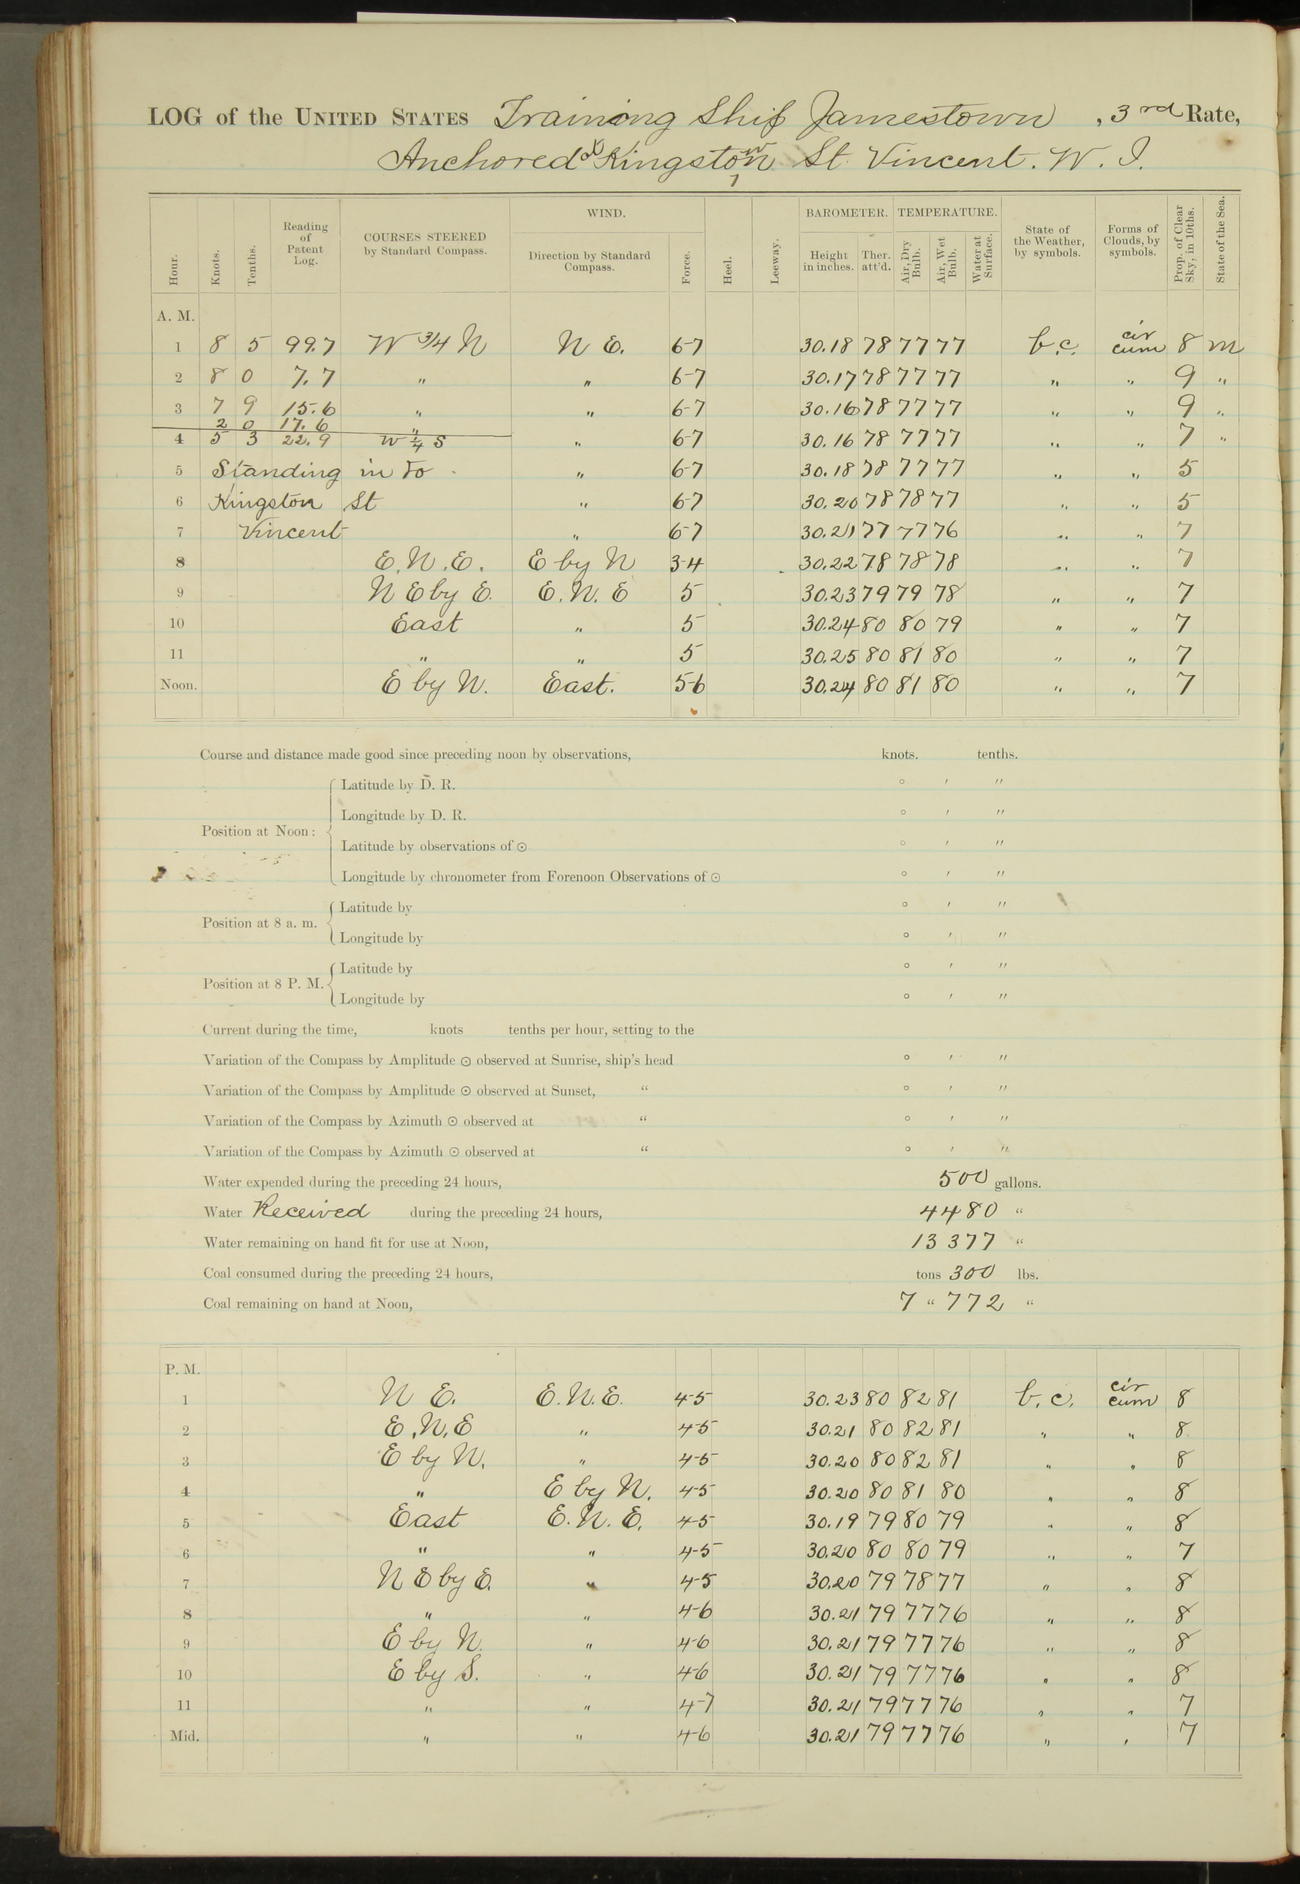 LOG of the UNITED STATES Training Ship Jamestown, 3rd Rate,
Anchored at Kingstown St. Vincent. W. I.
WIND. BAROMETER. TEMPERATURE.
Hour. Knots. Tenths. Reading of Patent Log. COURSES STEERED by Standard Compass. Direction by Standard Compass. Force. Heel. Leeway. Height in inches. Ther. att'd. Air, Dry Bulb. Air, Wet Bulb. Water at Surface. State of the Weather, by symbols. Forms of Clouds, by symbols. Prop. of Clear Sky, in 10ths. State of the Sea.
A. M.
1 8 5 99.7 W 3/4 N N E. 6-7 30.18 78 77 77 b.c. cir cum 8 m
2 8 0 7.7 " " 6-7 30.17 78 77 77 " " 9 "
3 7 9 15.6 " " 6-7 30.16 78 77 77 " " 9 "
2 0 17.6 "
4 5 3 22.9 W 1/4 S " 6-7 30.16 78 77 77 " " 7 "
5 Standing in to " 6-7 30.18 78 77 77 " " 5
6 Kingston St " 6-7 30.20 78 78 77 " " 5
7 Vincent " 6-7 30.21 77 77 76 " " 7
8 E.N.E. E by N 3-4 30.22 78 78 78 " " 7
9 N E by E. E.N.E 5 30.23 79 79 78 " " 7
10 East " 5 30.24 80 80 79 " " 7
11 " " 5 30.25 80 81 80 " " 7
Noon. E by N. East. 5-6 30.24 80 81 80 " " 7
Course and distance made good since preceding noon by observations, knots. tenths.
Position at Noon: Latitude by D. R. ° ′ ″
Longitude by D. R. ° ′ ″
Latitude by observations of ⊙ ° ′ ″
Longitude by chronometer from Forenoon Observations of ⊙ ° ′ ″
Position at 8 a. m. Latitude by ° ′ ″
Longitude by ° ′ ″
Position at 8 P. M. Latitude by ° ′ ″
Longitude by ° ′ ″
Current during the time, knots tenths per hour, setting to the
Variation of the Compass by Amplitude ⊙ observed at Sunrise, ship's head ° ′ ″
Variation of the Compass by Amplitude ⊙ observed at Sunset, “ ° ′ ″
Variation of the Compass by Azimuth ⊙ observed at “ ° ′ ″
Variation of the Compass by Azimuth ⊙ observed at “ ° ′ ″
Water expended during the preceding 24 hours, 500 gallons.
Water Received during the preceding 24 hours, 4480 “
Water remaining on hand fit for use at Noon, 13377 “
Coal consumed during the preceding 24 hours, tons 300 lbs.
Coal remaining on hand at Noon, 7 “ 772 “
P. M.
1 N E. E.N.E. 4-5 30.23 80 82 81 b.c. cir cum 8
2 E.N.E " 4-5 30.21 80 82 81 " " 8
3 E by N. " 4-5 30.20 80 82 81 " " 8
4 " E by N. 4-5 30.20 80 81 80 " " 8
5 East E.N.E. 4-5 30.19 79 80 79 " " 8
6 " " 4-5 30.20 80 80 79 " " 7
7 N E by E. " 4-5 30.20 79 78 77 " " 8
8 " " 4-6 30.21 79 77 76 " " 8
9 E by N. " 4-6 30.21 79 77 76 " " 8
10 E by S. " 4-6 30.21 79 77 76 " " 8
11 " " 4-7 30.21 79 77 76 " " 7
Mid. " " 4-6 30.21 79 77 76 " " 7